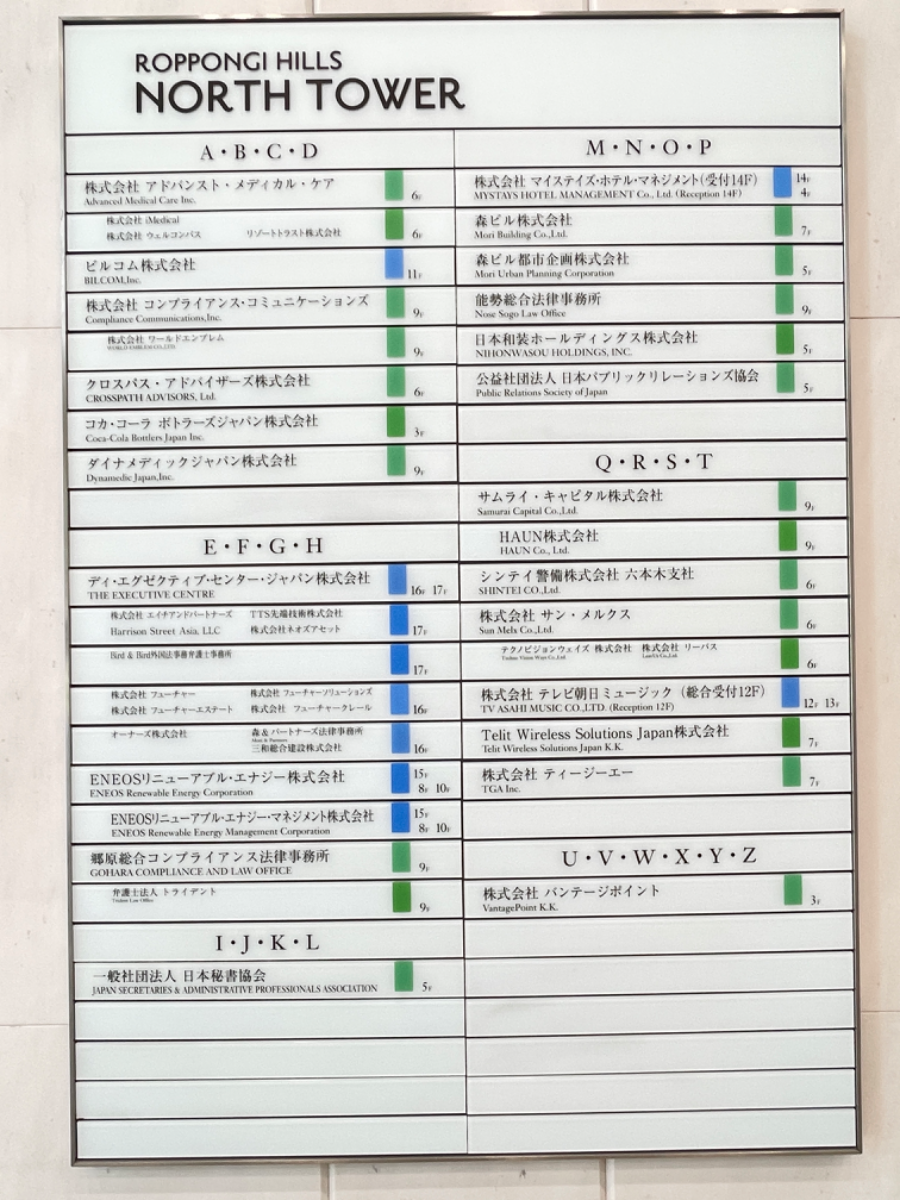 ROPPONGI HILLS
NORTH TOWER
A・B・C・D
株式会社 アドバンスト・メディカル・ケア
Advanced Medical Care Inc.
6F
株式会社 iMedical
株式会社 ウェルコンパス リゾートトラスト株式会社
6F
ビルコム株式会社
BILCOM,Inc.
11F
株式会社 コンプライアンス・コミュニケーションズ
Compliance Communications,Inc.
9F
株式会社 ワールドエンブレム
WORLD EMBLEM CO.,LTD.
9F
クロスパス・アドバイザーズ株式会社
CROSSPATH ADVISORS, Ltd.
6F
コカ・コーラ ボトラーズジャパン株式会社
Coca-Cola Bottlers Japan Inc.
3F
ダイナメディックジャパン株式会社
Dynamedic Japan,Inc.
9F
E・F・G・H
ディ・エグゼクティブ・センター・ジャパン株式会社
THE EXECUTIVE CENTRE
16F 17F
株式会社 エイチアンドパートナーズ TTS先端技術株式会社
Harrison Street Asia, LLC 株式会社ネオズアセット
17F
Bird & Bird外国法事務弁護士事務所
17F
株式会社 フューチャー 株式会社 フューチャーソリューションズ
株式会社 フューチャーエステート 株式会社 フューチャークレール
16F
オーナーズ株式会社 森&パートナーズ法律事務所
Mori & Partners
三和総合建設株式会社
16F
ENEOSリニューアブル・エナジー株式会社
ENEOS Renewable Energy Corporation
15F
8F 10F
ENEOSリニューアブル・エナジー・マネジメント株式会社
ENEOS Renewable Energy Management Corporation
15F
8F 10F
郷原総合コンプライアンス法律事務所
GOHARA COMPLIANCE AND LAW OFFICE
9F
弁護士法人 トライデント
Trident Law Office
9F
I・J・K・L
一般社団法人 日本秘書協会
JAPAN SECRETARIES & ADMINISTRATIVE PROFESSIONALS ASSOCIATION
5F
M・N・O・P
株式会社 マイステイズ・ホテル・マネジメント(受付14F)
MYSTAYS HOTEL MANAGEMENT Co., Ltd. (Reception 14F)
14F
4F
森ビル株式会社
Mori Building Co.,Ltd.
7F
森ビル都市企画株式会社
Mori Urban Planning Corporation
5F
能勢総合法律事務所
Nose Sogo Law Office
9F
日本和装ホールディングス株式会社
NIHONWASOU HOLDINGS, INC.
5F
公益社団法人 日本パブリックリレーションズ協会
Public Relations Society of Japan
5F
Q・R・S・T
サムライ・キャピタル株式会社
Samurai Capital Co.,Ltd.
9F
HAUN株式会社
HAUN Co., Ltd.
9F
シンテイ警備株式会社 六本木支社
SHINTEI CO.,LTD.
6F
株式会社 サン・メルクス
Sun Melx Co.,Ltd.
6F
テクノビジョンウェイズ 株式会社 株式会社 リーバス
6F
株式会社 テレビ朝日ミュージック (総合受付12F)
TV ASAHI MUSIC CO.,LTD. (Reception 12F)
12F 13F
Telit Wireless Solutions Japan株式会社
Telit Wireless Solutions Japan K.K.
7F
株式会社 ティージーエー
TGA Inc.
7F
U・V・W・X・Y・Z
株式会社 バンテージポイント
VantagePoint K.K.
3F